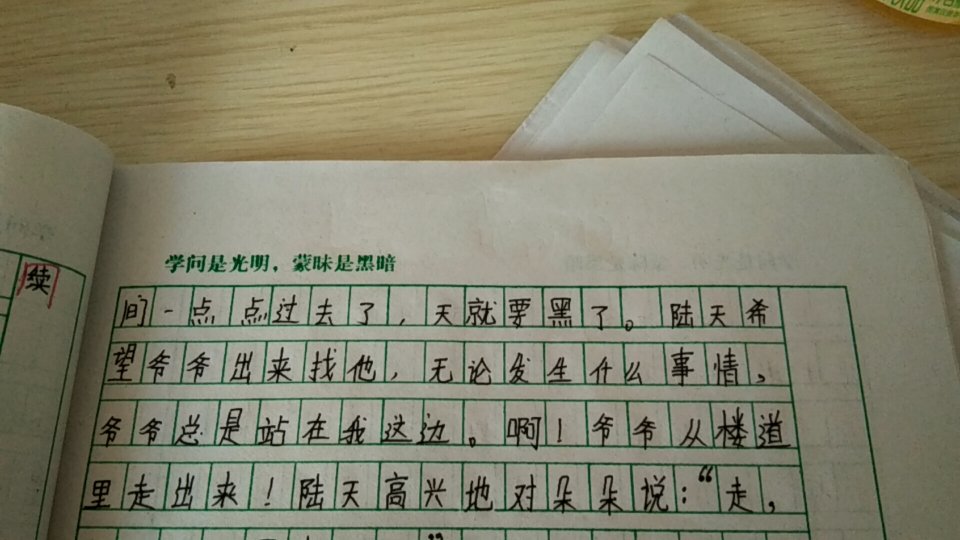 学问是光明，蒙昧是黑暗
续
间一点点过去了，天就要黑了。陆天希
望爷爷出来找他，无论发生什么事情，
爷爷总是站在我这边。啊！爷爷从楼道
里走出来！陆天高兴地对朵朵说：“走，